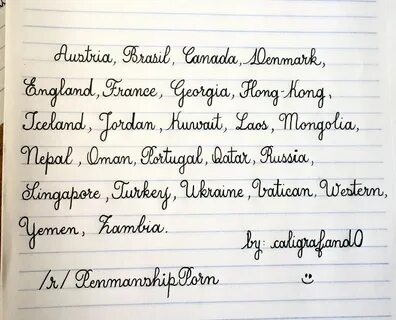 Austria, Brasil, Canada, Denmark,
England, France, Georgia, Hong-Kong,
Iceland, Jordan, Kuwait, Laos, Mongolia,
Nepal, Oman, Portugal, Qatar, Russia,
Singapore, Turkey, Ukraine, Vatican, Western,
Yemen, Zambia.
by: caligrafand0
/r/ PenmanshipPorn